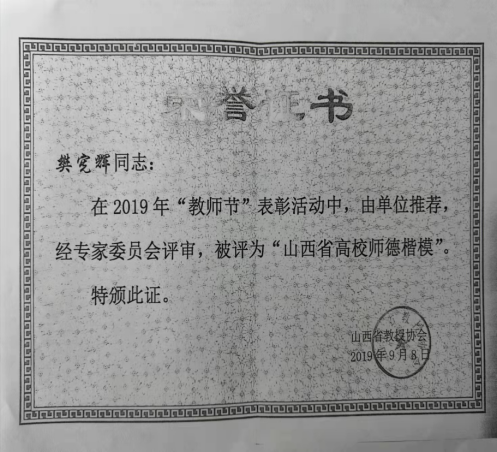 荣誉证书
樊宪辉同志：
在2019年“教师节”表彰活动中，由单位推荐，
经专家委员会评审，被评为“山西省高校师德楷模”。
特颁此证。
山西省教授协会
2019年9月8日